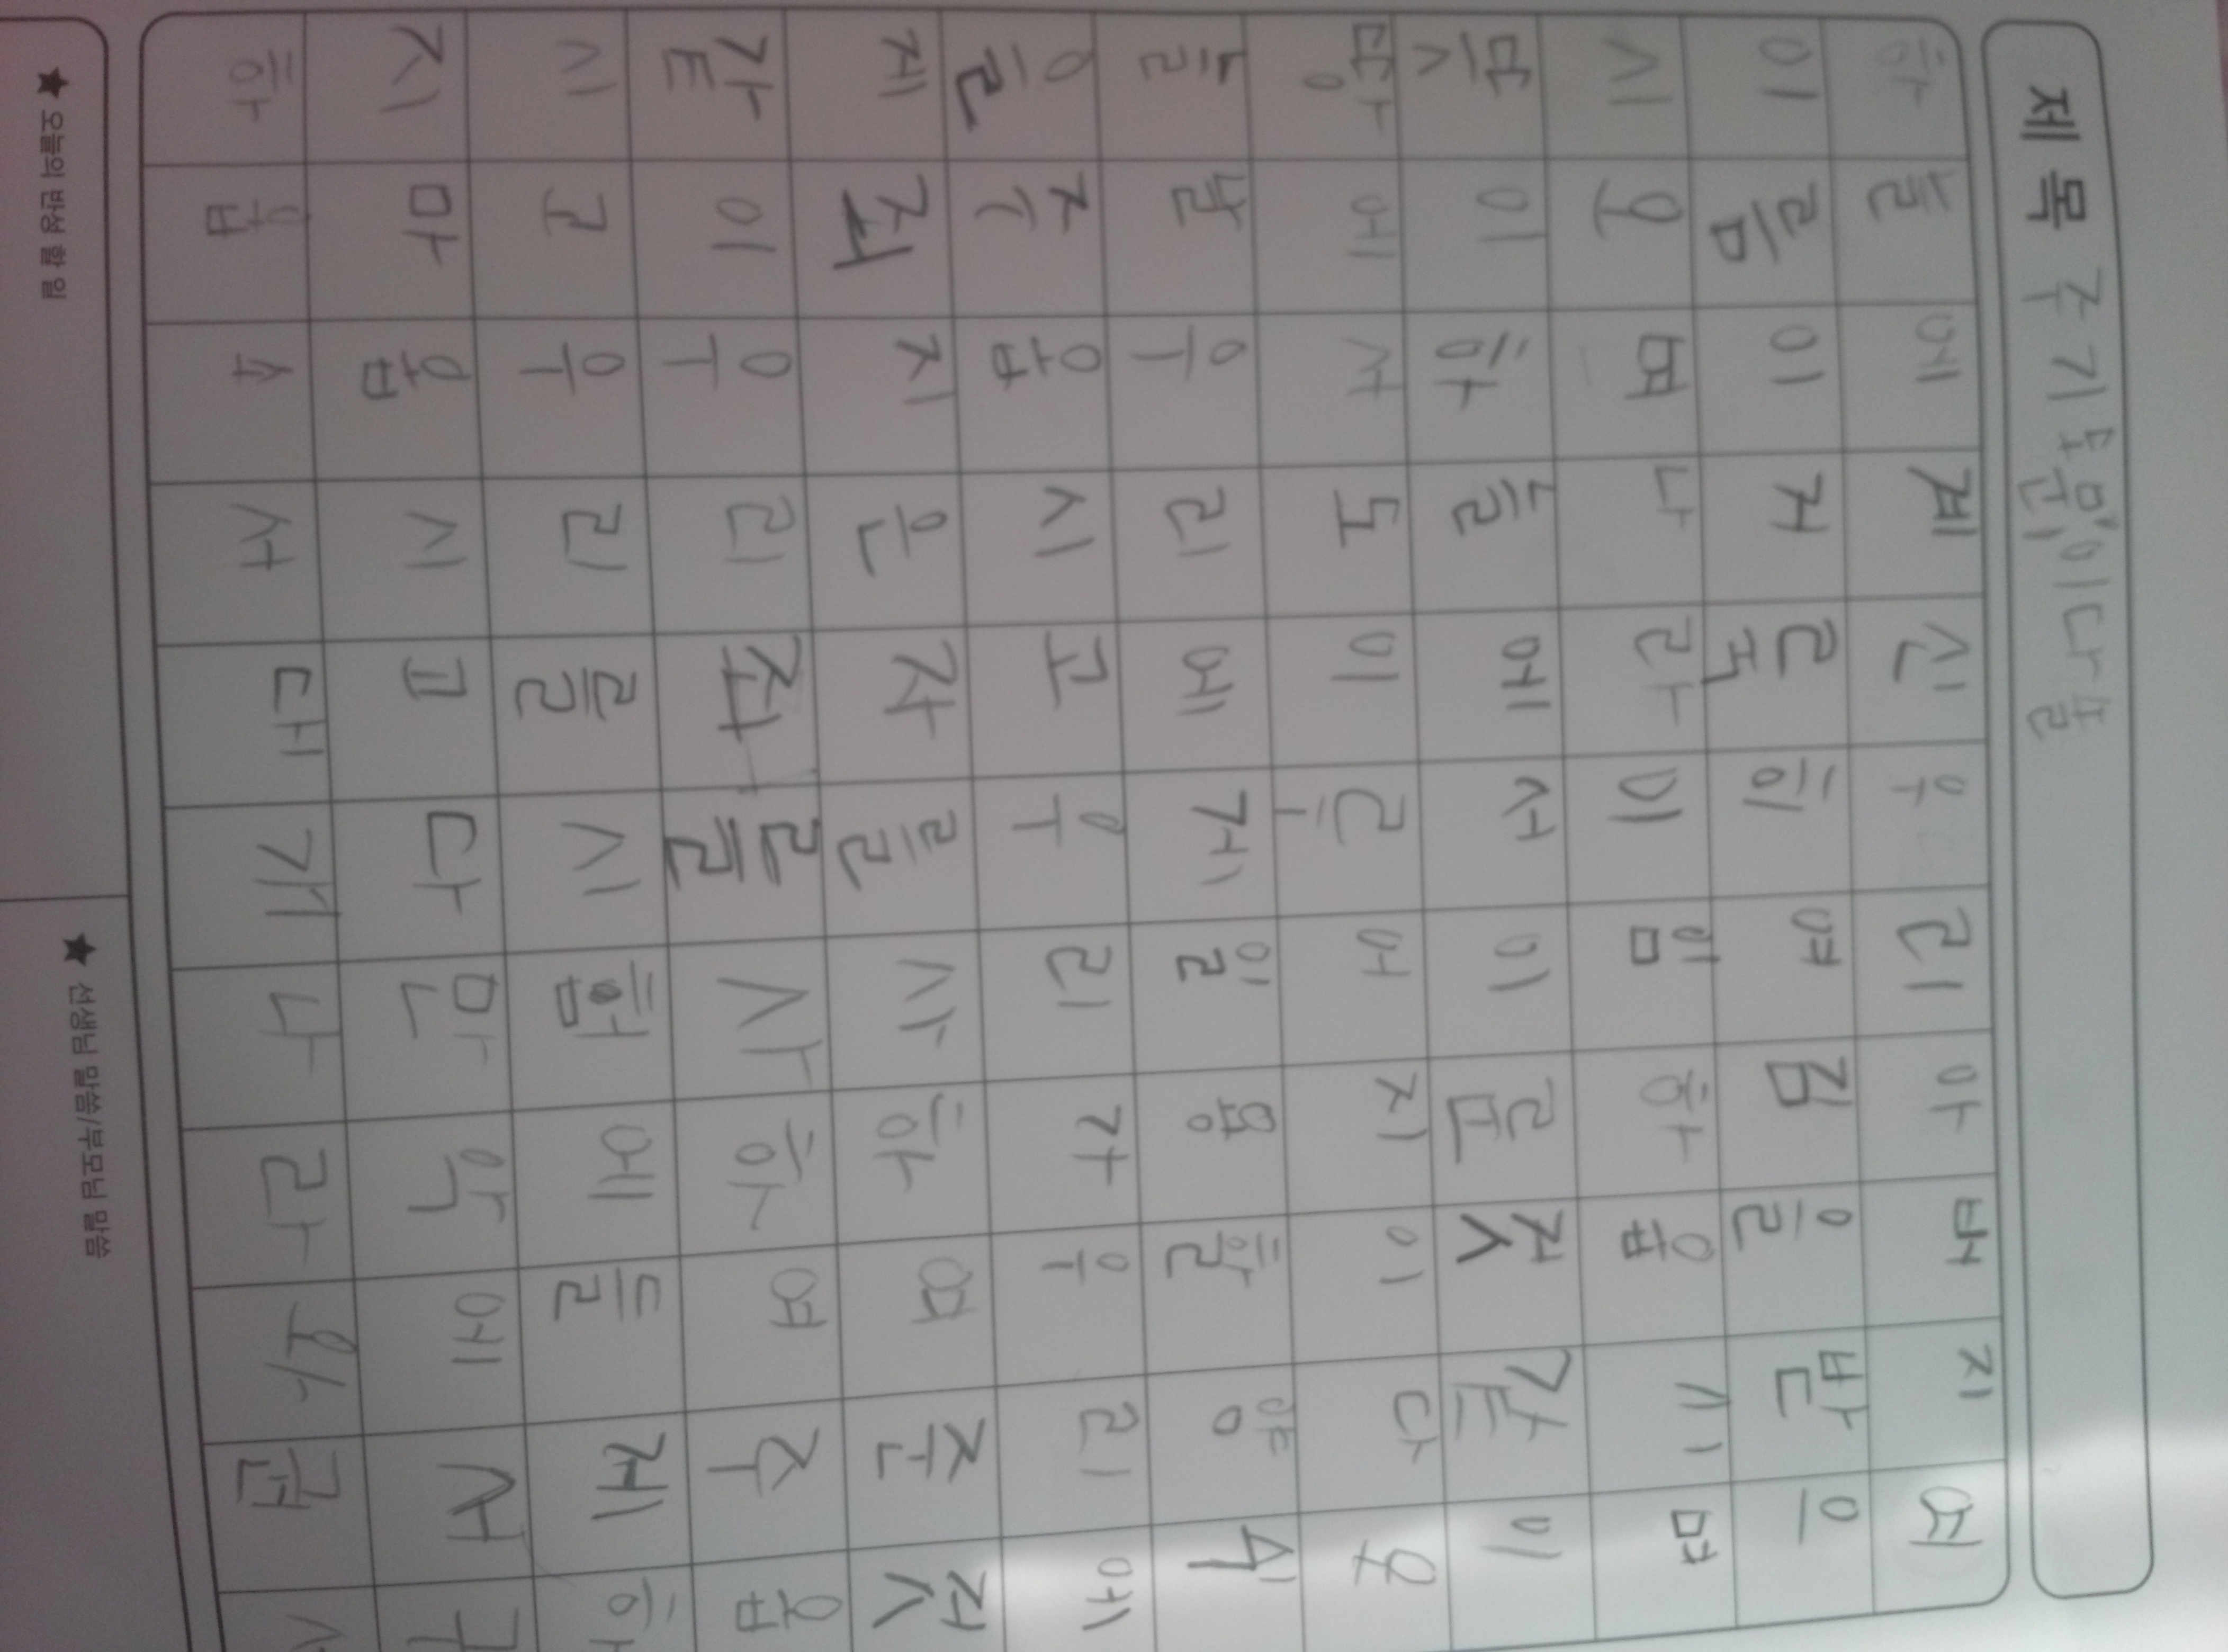 제 목 주기도문이다을
하늘에계신우리아버지여
이름이거룩히여김을받으
시오며나라이임하옵시며
뜻이하늘에서이룬것같이
땅에서도이루어지이다오
늘날우리에게일용할양식
을주옵시고우리가우리에
제죄지은자를사하여준것
같이우리죄를사하여주옵
시고우리를시험에들게하
지마옵시고다만악에서구
하옵소서대개나라와권
★ 오늘의 반성 할 일
★ 선생님 말씀/부모님 말씀